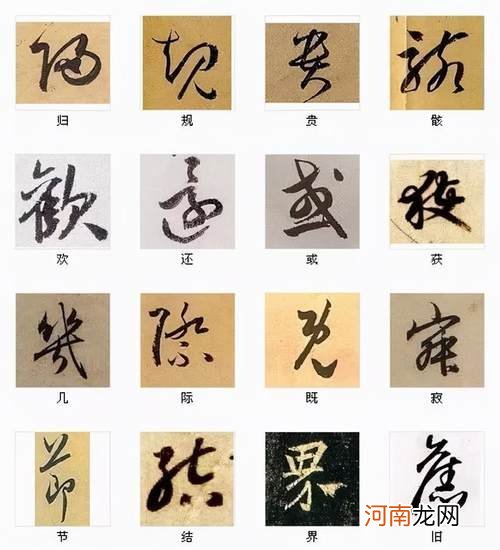 归 规 贵 骸
欢 还 或 获
几 际 既 寂
节 结 界 旧
河南龙网